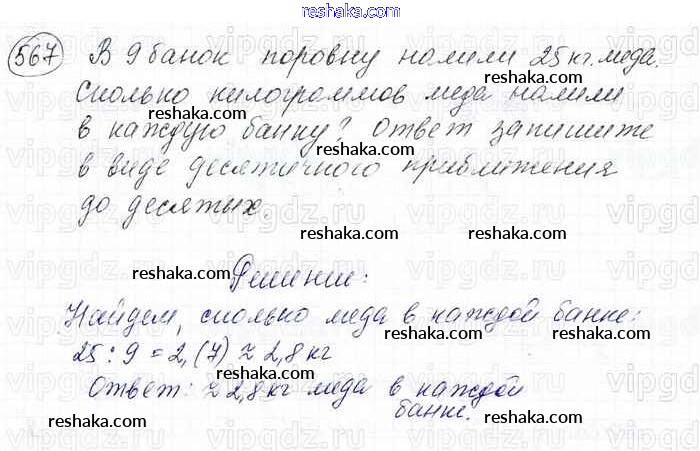 reshaka.com
567 В 9 банок поровну налили 25 кг. меда.
reshaka.com
Сколько килограммов меда налили
reshaka.com
в каждую банку? Ответ запишите
в виде десятичного приближения
reshaka.com
до десятых.
reshaka.com reshaka.com
Решение:
reshaka.com
Найдем, сколько меда в каждой банке:
reshaka.com reshaka.com
25 : 9 = 2,(7) ≈ 2,8 кг
Ответ: ≈ 2,8 кг меда в каждой
reshaka.com
банке.
reshaka.com